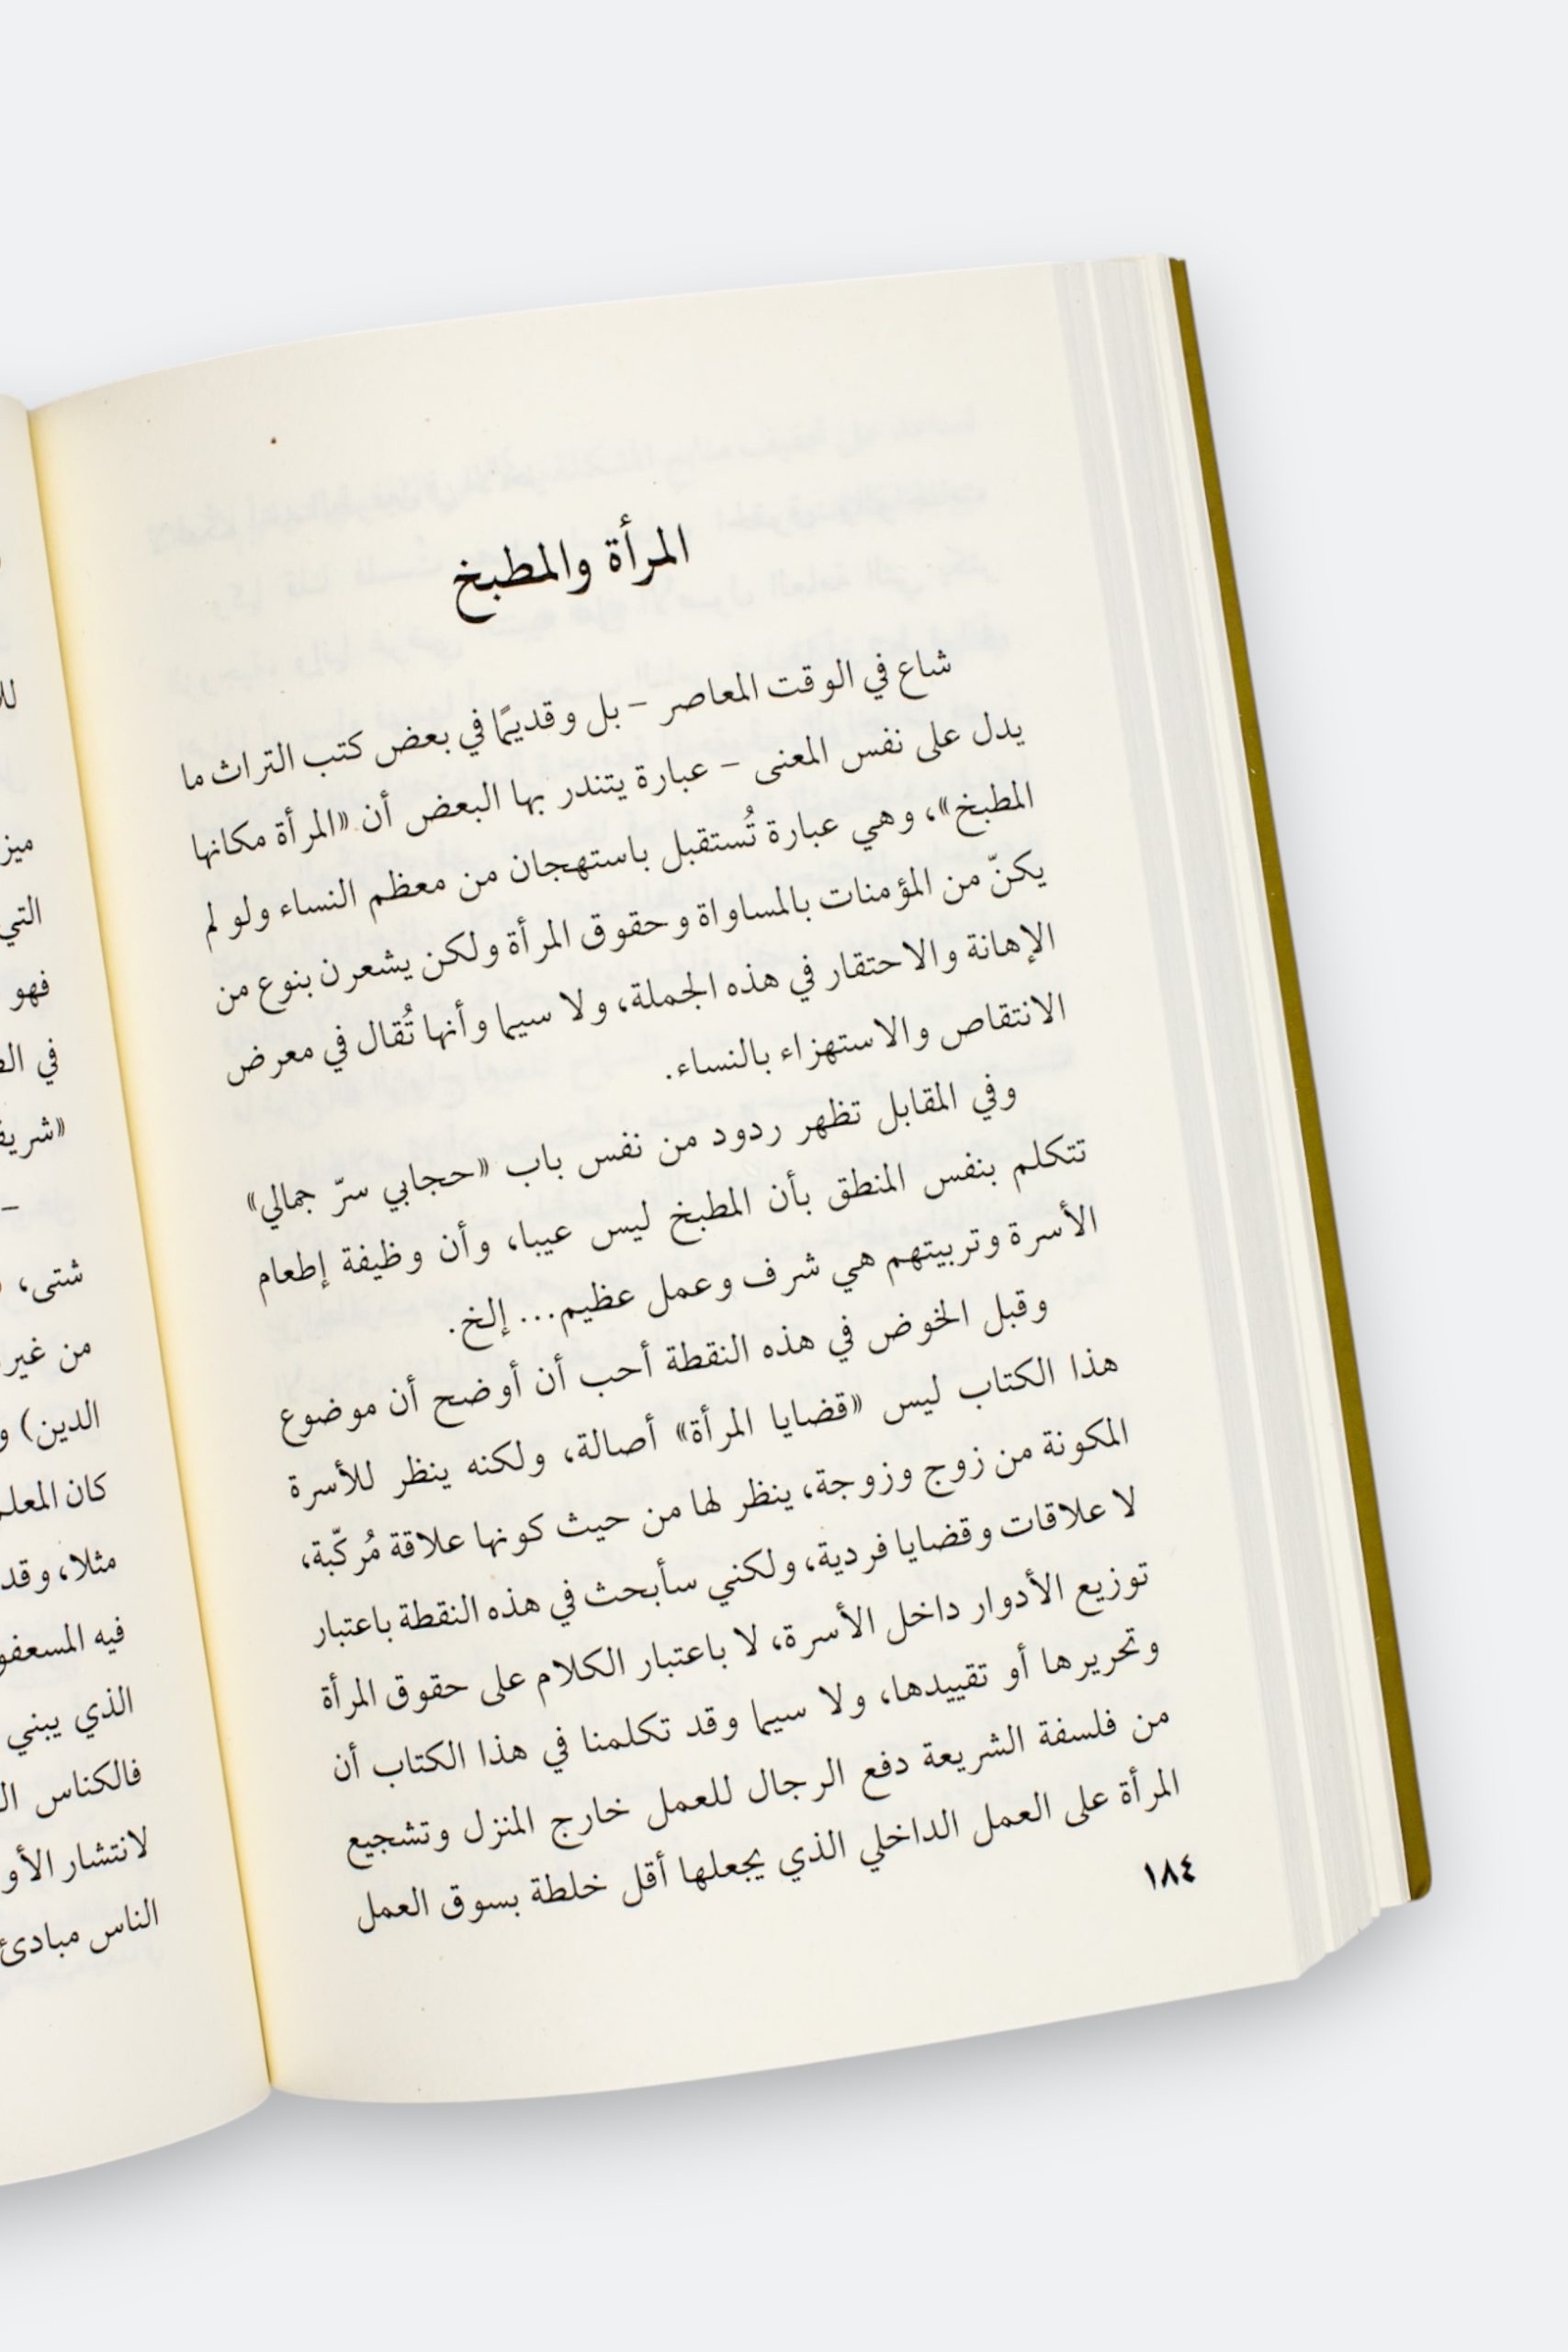 المرأة والمطبخ
شاع في الوقت المعاصر – بل وقديمًا في بعض كتب التراث ما
يدل على نفس المعنى – عبارة يتندر بها البعض أن «المرأة مكانها
المطبخ»، وهي عبارة تُستقبل باستهجان من معظم النساء ولو لم
يكنّ من المؤمنات بالمساواة وحقوق المرأة ولكن يشعرن بنوع من
الإهانة والاحتقار في هذه الجملة، ولا سيما وأنها تُقال في معرض
الانتقاص والاستهزاء بالنساء.
وفي المقابل تظهر ردود من نفس باب «حجابي سرّ جمالي»
تتكلم بنفس المنطق بأن المطبخ ليس عيبا، وأن وظيفة إطعام
الأسرة وتربيتهم هي شرف وعمل عظيم... إلخ.
وقبل الخوض في هذه النقطة أحب أن أوضح أن موضوع
هذا الكتاب ليس «قضايا المرأة» أصالة، ولكنه ينظر للأسرة
المكونة من زوج وزوجة، ينظر لها من حيث كونها علاقة مُركّبة،
لا علاقات وقضايا فردية، ولكني سأبحث في هذه النقطة باعتبار
توزيع الأدوار داخل الأسرة، لا باعتبار الكلام على حقوق المرأة
وتحريرها أو تقييدها، ولا سيما وقد تكلمنا في هذا الكتاب أن
من فلسفة الشريعة دفع الرجال للعمل خارج المنزل وتشجيع
المرأة على العمل الداخلي الذي يجعلها أقل خلطة بسوق العمل
١٨٤
التي
فهو
في
شتى،
من غير
الدين) و
كان
مثلا، وقد
فيه
الذي يبني
فالكناس
لانتشار
الناس مبادئ